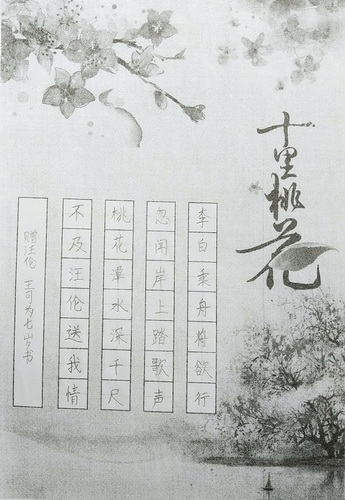 十里桃花
李白乘舟将欲行
忽闻岸上踏歌声
桃花潭水深千尺
不及汪伦送我情
赠汪伦 王可为七岁书